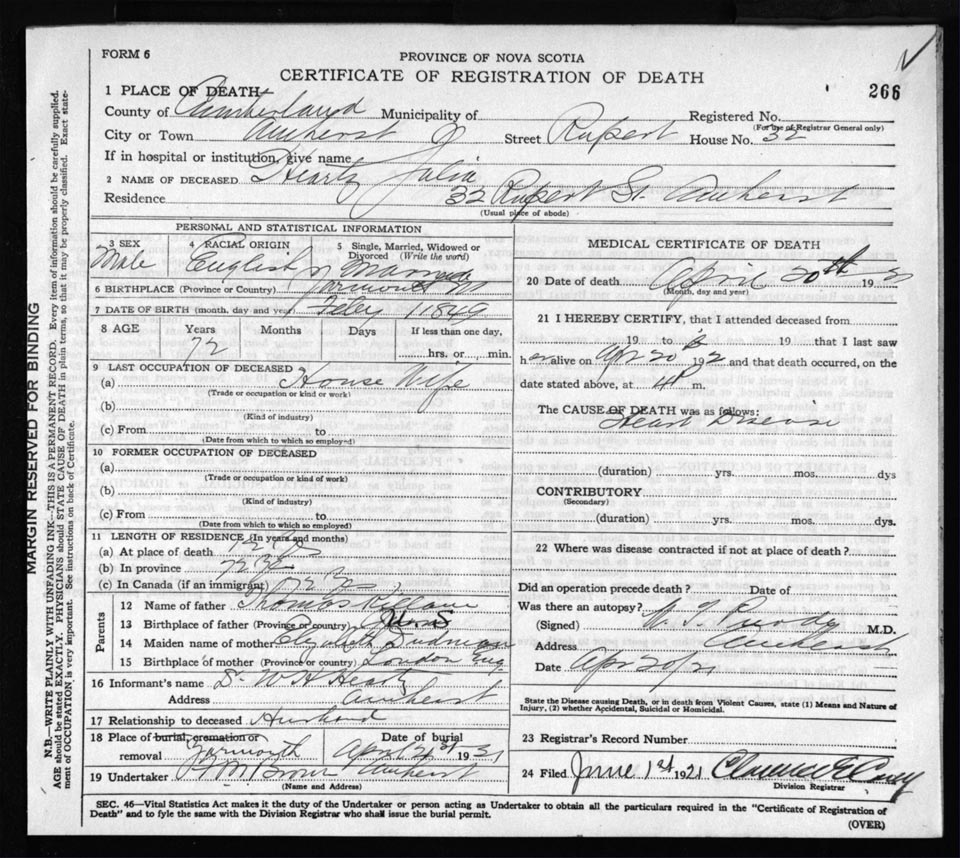 FORM 6
PROVINCE OF NOVA SCOTIA
CERTIFICATE OF REGISTRATION OF DEATH
266
1 PLACE OF DEATH
County of Cumberland Municipality of
Registered No.
(For use of Registrar General only)
City or Town Amherst Street Rupert House No. 32
If in hospital or institution, give name
2 NAME OF DECEASED Heartz Julia
Residence 32 Rupert St. Amherst
(Usual place of abode)
PERSONAL AND STATISTICAL INFORMATION
3 SEX
Male
4 RACIAL ORIGIN
English
5 Single, Married, Widowed or Divorced (Write the word)
Married
6 BIRTHPLACE (Province or Country) Yarmouth NS
7 DATE OF BIRTH (month, day and year) Feby 1 1849
8 AGE Years Months Days If less than one day,
72 hrs. or min.
9 LAST OCCUPATION OF DECEASED
(a) House Wife
(Trade or occupation or kind or work)
(b)
(Kind of industry)
(c) From to
(Date from which to which so employed)
10 FORMER OCCUPATION OF DECEASED
(a)
(Trade or occupation or kind of work)
(b)
(Kind of industry)
(c) From to
(Date from which to which so employed)
11 LENGTH OF RESIDENCE (In years and months)
(a) At place of death
(b) In province 72 yrs
(c) In Canada (if an immigrant) 72 yrs
Parents
12 Name of father Thomas Killam
13 Birthplace of father (Province or country)
14 Maiden name of mother Elizabeth
15 Birthplace of mother (Province or country) London Eng
16 Informant's name Dr W H Heartz
Address Amherst
17 Relationship to deceased Husband
18 Place of burial, cremation or removal Yarmouth
Date of burial April 21st 19
19 Undertaker Brown Amherst
(Name and Address)
MEDICAL CERTIFICATE OF DEATH
20 Date of death April 20th 19
(Month, day and year)
21 I HEREBY CERTIFY, that I attended deceased from
19 to 19 that I last saw
h er alive on Apr 20 192 and that death occurred, on the
date stated above, at 4 P m.
The CAUSE OF DEATH was as follows:
Heart Disease
(duration) yrs. mos. dys
CONTRIBUTORY
(Secondary)
(duration) yrs. mos. dys.
22 Where was disease contracted if not at place of death?
Did an operation precede death? Date of
Was there an autopsy?
(Signed) W. T. Purdy M.D.
Address Amherst
Date Apr 20/21
State the Disease causing Death, or in death from Violent Causes, state (1) Means and Nature of Injury, (2) whether Accidental, Suicidal or Homicidal.
23 Registrar's Record Number
24 Filed June 1st 1921
Division Registrar
SEC. 46—Vital Statistics Act makes it the duty of the Undertaker or person acting as Undertaker to obtain all the particulars required in the "Certificate of Registration of
Death" and to fyle the same with the Division Registrar who shall issue the burial permit.
(OVER)
MARGIN RESERVED FOR BINDING
N.B.—WRITE PLAINLY WITH UNFADING INK—THIS IS A PERMANENT RECORD. Every item of information should be carefully supplied.
AGE should be stated EXACTLY. PHYSICIANS should STATE CAUSE OF DEATH in plain terms, so that it may be properly classified. Exact state-
ment of OCCUPATION is very important. See instructions on back of Certificate.